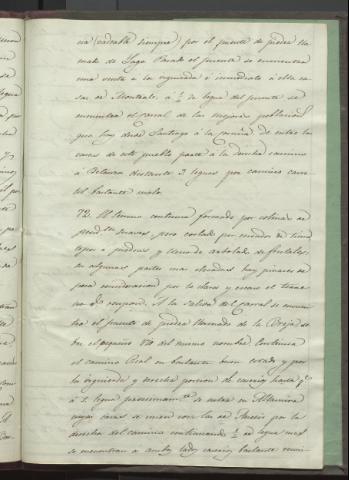 ria (vadeable siempre) por el puente de piedra lla-
mado de Lago Pasado el puente se encuentra
una venta a la izquierda é inmediato á ella ca-
sas de Montouto, á ½ de legua del puente se
encuentra el carral de las mejores poblacion.s
que hay desde Santiago á la Coruña. De entre las
casas de este pueblo parte á la derecha camino
á Betanzos distante 3 leguas por camino carre-
til bastante malo.
72. El terreno continua formado por colinas de
pend.tes suaves, pero cortado por
tapias ó piedras y lleno de arbolado de frutales,
en algunas partes mas elevadas hay pinares de
poca consideracion por lo claros y escaso el terre-
no q.e ocupan. A la salida del carral se encuen-
tra el puente de piedra llamado de la Breja so-
bre el pequeño rio del mismo nombre. Continua
el camino Real en bastante buen estado y por
la izquierda y derecha porcion de caserios hasta q.e
á 1 legua proximam.te se entra en Altamira
cuyas casas se unen con las de por la
derecha del camino continuando ½ de legua mas
se encuentran a ambos lados caserios bastante